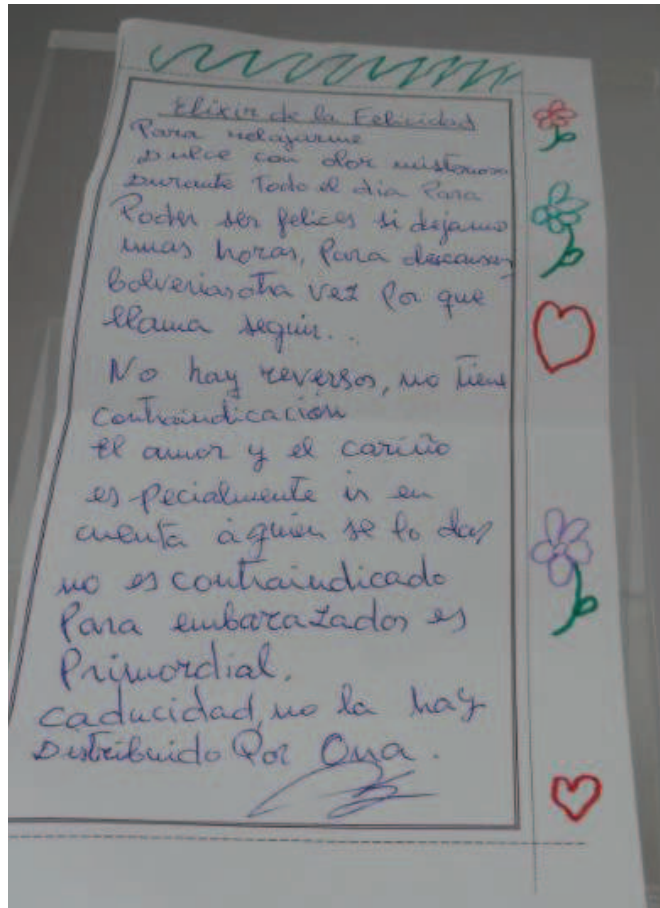 Elixir de la Felicidad
Para relajarme
Dulce con olor misterioso
Durante Todo el dia Para
Poder ser felices si dejamo
unas horas, Para descansar
bolverias otra vez Por que
llama seguir...
No hay reversos, no tiene
contraindicación
El amor y el cariño
es pecialmente ir en
cuenta a quien se lo das
no es contraindicado
Para embarazados es
Primordial.
caducidad, no la hay
Distribuido Por Ona.